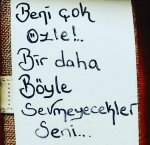 Beni çok
Özle!.
Bir daha
Böyle
Sevmeyecekler
Seni...